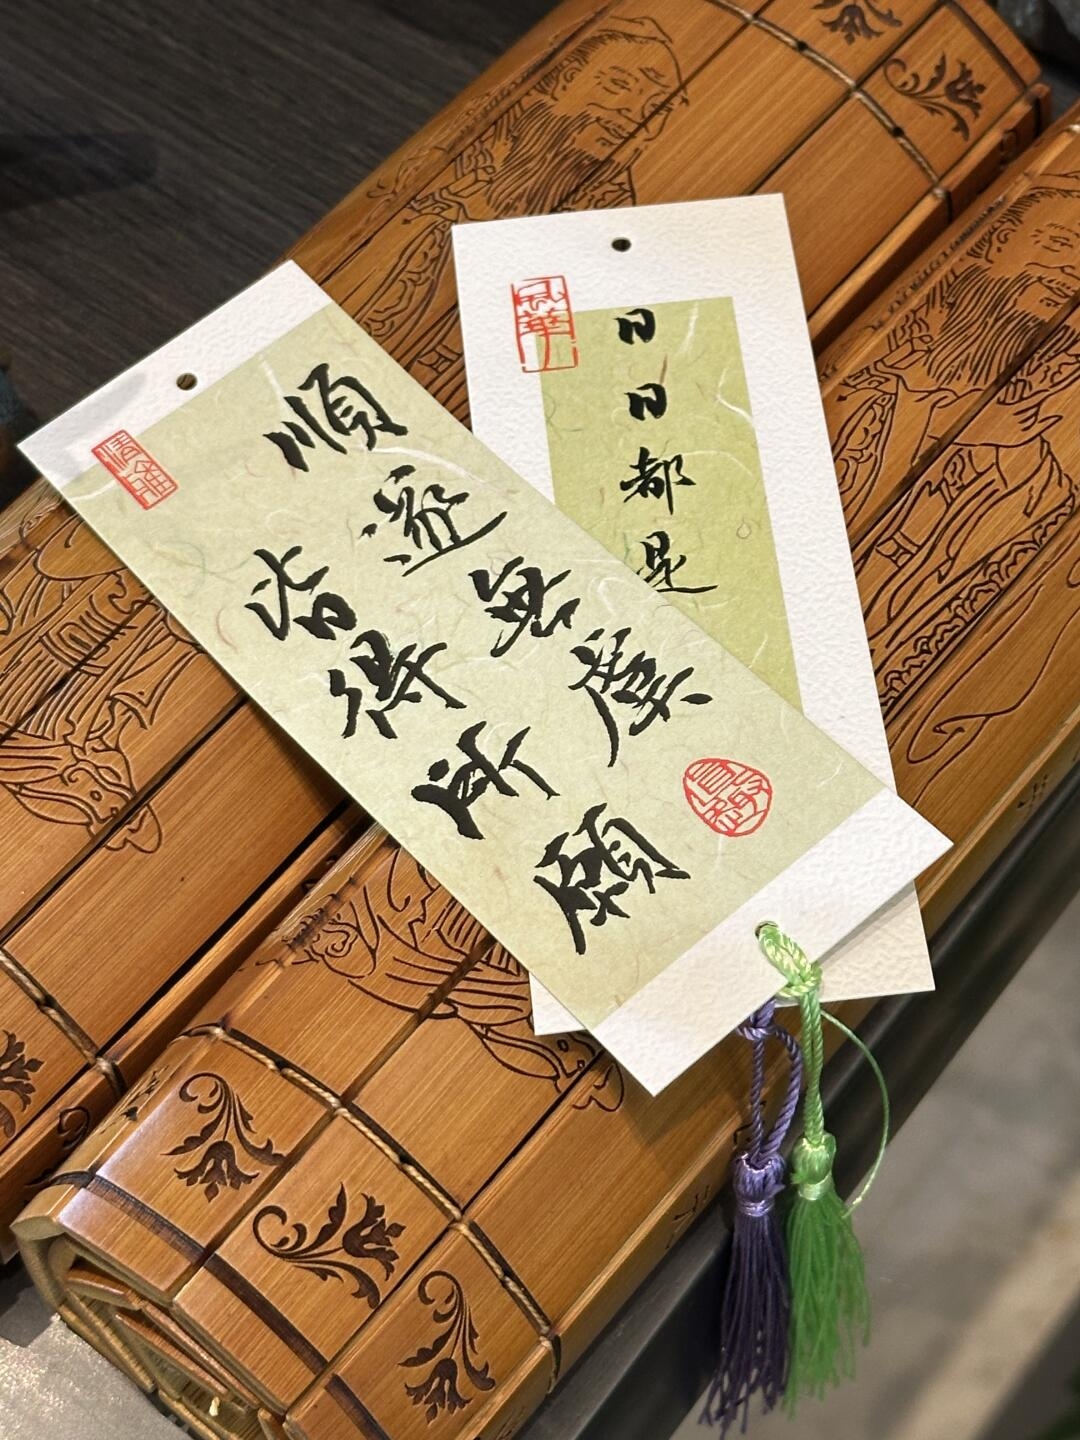 順遂無虞
皆得所願
清雅
日日都是